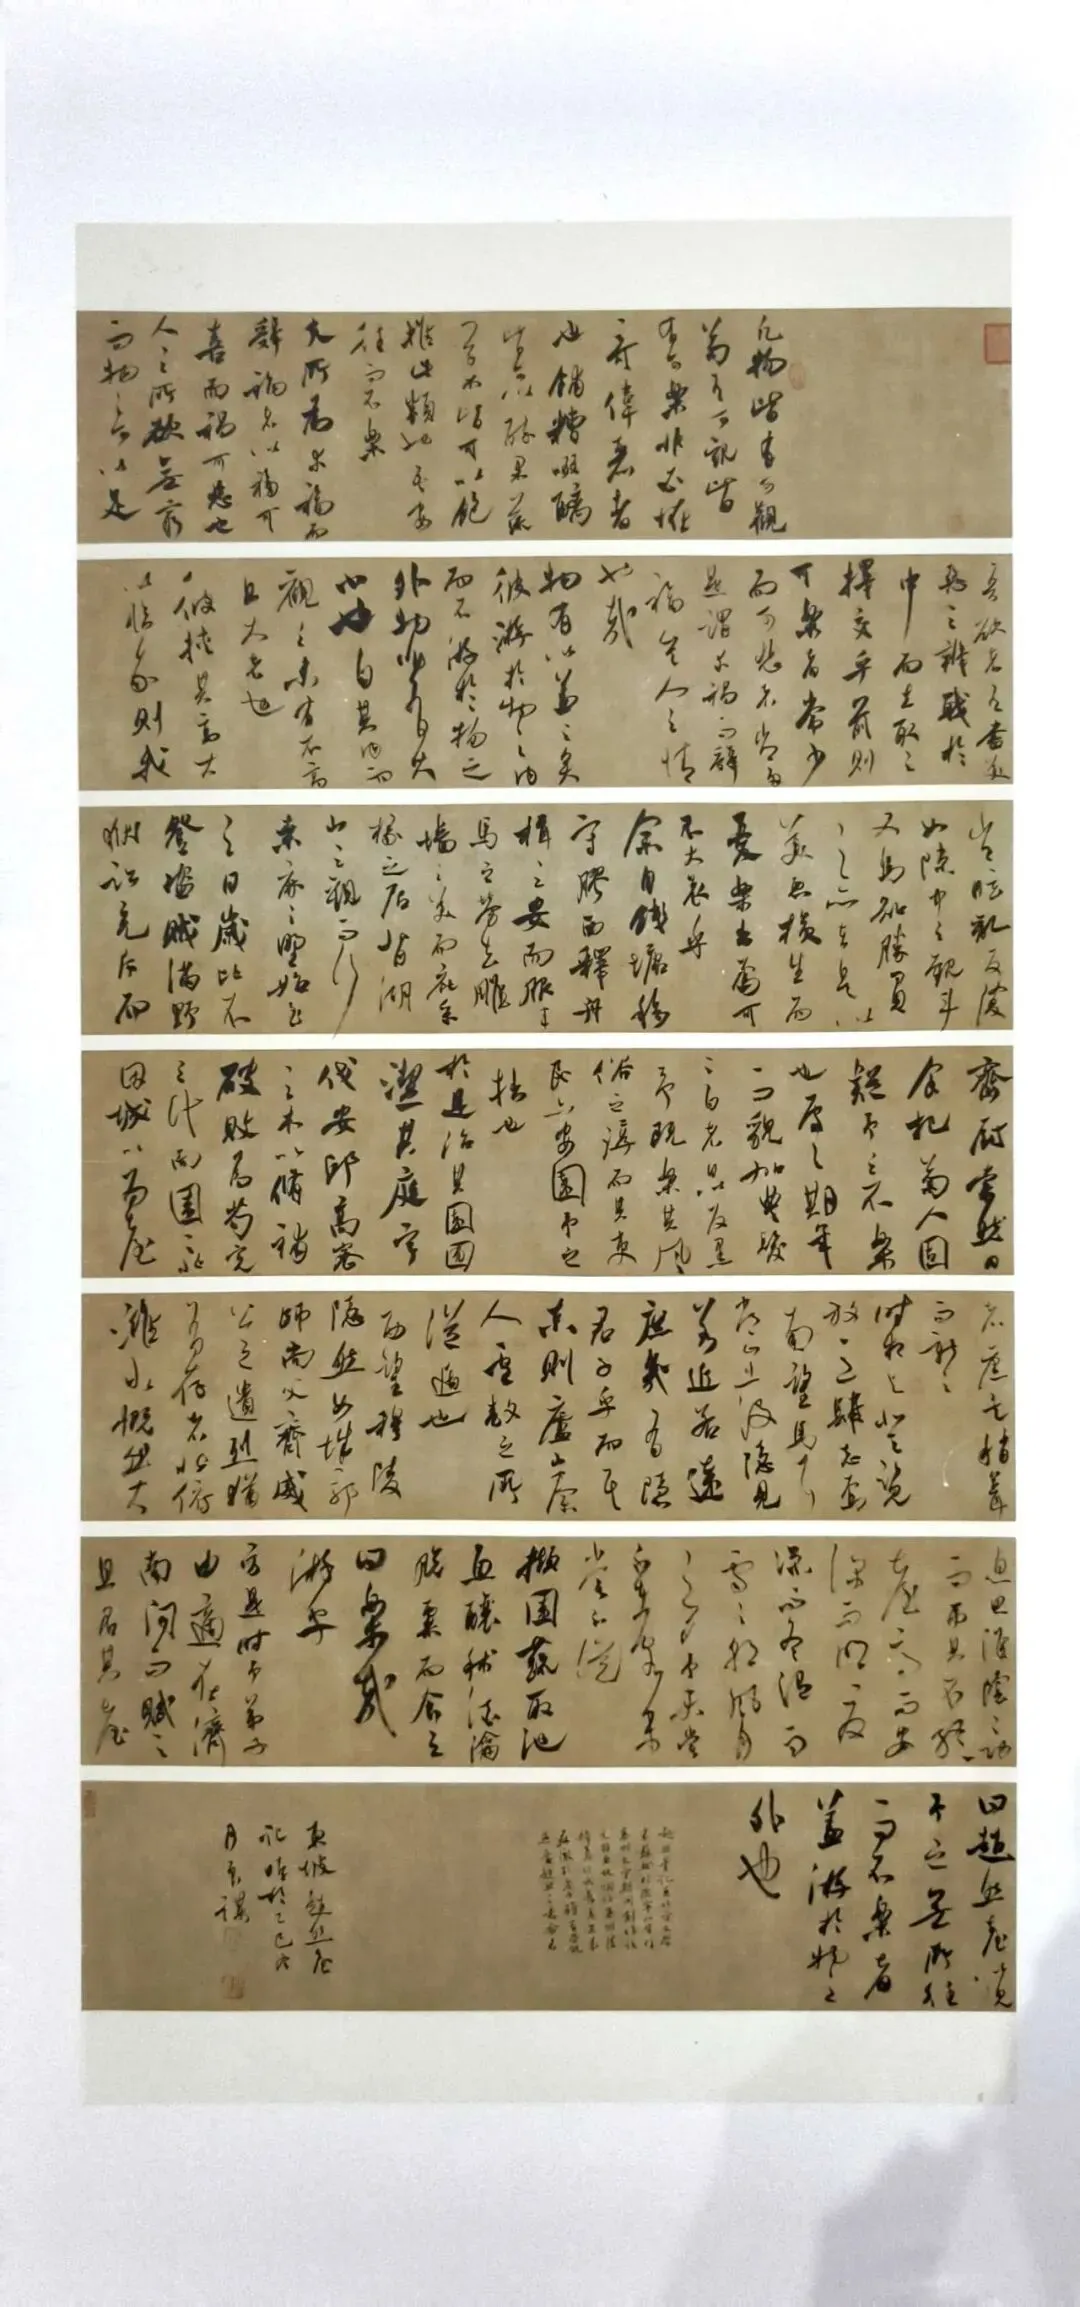 凡物皆有可觀
苟有可觀皆
有可樂非必怪
奇偉麗者
也餔糟啜醨
皆可以醉果蔬
草木皆可以飽
推此類也吾安
往而不樂
夫所為求福而
辭禍者以福可
喜而禍可悲也
人之所欲無窮
而物之可以足
吾欲者有盡美
惡之辨戰於
中而去取之
擇交乎前則
可樂者常少
而可悲者常多
是謂求禍而辭
福豈人之情
也哉
物有以蓋之矣
彼游於物之內
而不游於物之
外物非有大
小也自其內而
觀之未有不高
且大者也
彼挾其高大
以臨我則我
常眩亂反覆
如隙中之觀鬥
又焉知勝負
之所在是以
美惡橫生而
憂樂出焉可
不大哀乎
余自錢塘移
守膠西釋舟
楫之安而服車
馬之勞去雕
墻之美而庇采
椽之居背湖
山之觀而行
桑麻之野始至
之日歲比不
登盜賊滿野
獄訟充斥而
齋廚索然日
食杞菊人固
疑予之不樂
也處之期年
而貌加豐髮
之白者日以反黑
予既樂其風
俗之淳而其吏
民亦安予之
拙也
於是治其園囿
潔其庭宇
伐安邱高密
之木以修補
破敗為苟完
之計而園之北
因城以為臺
者舊矣稍葺
而新之
時相與登覽
放意肆志焉
南望馬耳
常山出沒隱見
若近若遠
庶幾有隱
君子乎而其
東則廬山秦
人盧敖之所
從遁也
西望穆陵
隱然如城郭
師尚父齊威
公之遺烈猶
有存者北俯
濰水慨然大
息思淮陰之功
而弔其不終
臺高而安
深而明夏
涼而冬溫雨
雪之朝風月
之夕予未嘗
不在客未
嘗不從
擷園蔬取池
魚釀秫酒瀹
脫粟而食之
曰樂哉
游乎
方是時予弟子
由適在濟
南聞而賦之
且名其臺
曰超然以見
予之無所往
而不樂者
蓋游於物之
外也
東坡超然臺
記時於乙巳冬